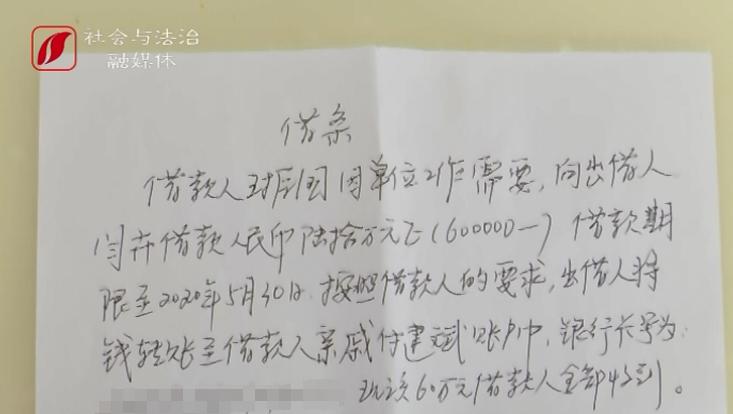 社会与法治
融媒体
借条
借款人因单位工作需要,向出借人
闫卉借款人民币陆拾万元正(600000—)借款期
限至2020年5月30日.按照借款人的要求,出借人将
钱转账至借款人亲戚付建斌账户中,银行卡号为:
现该60万元借款人全部收到。